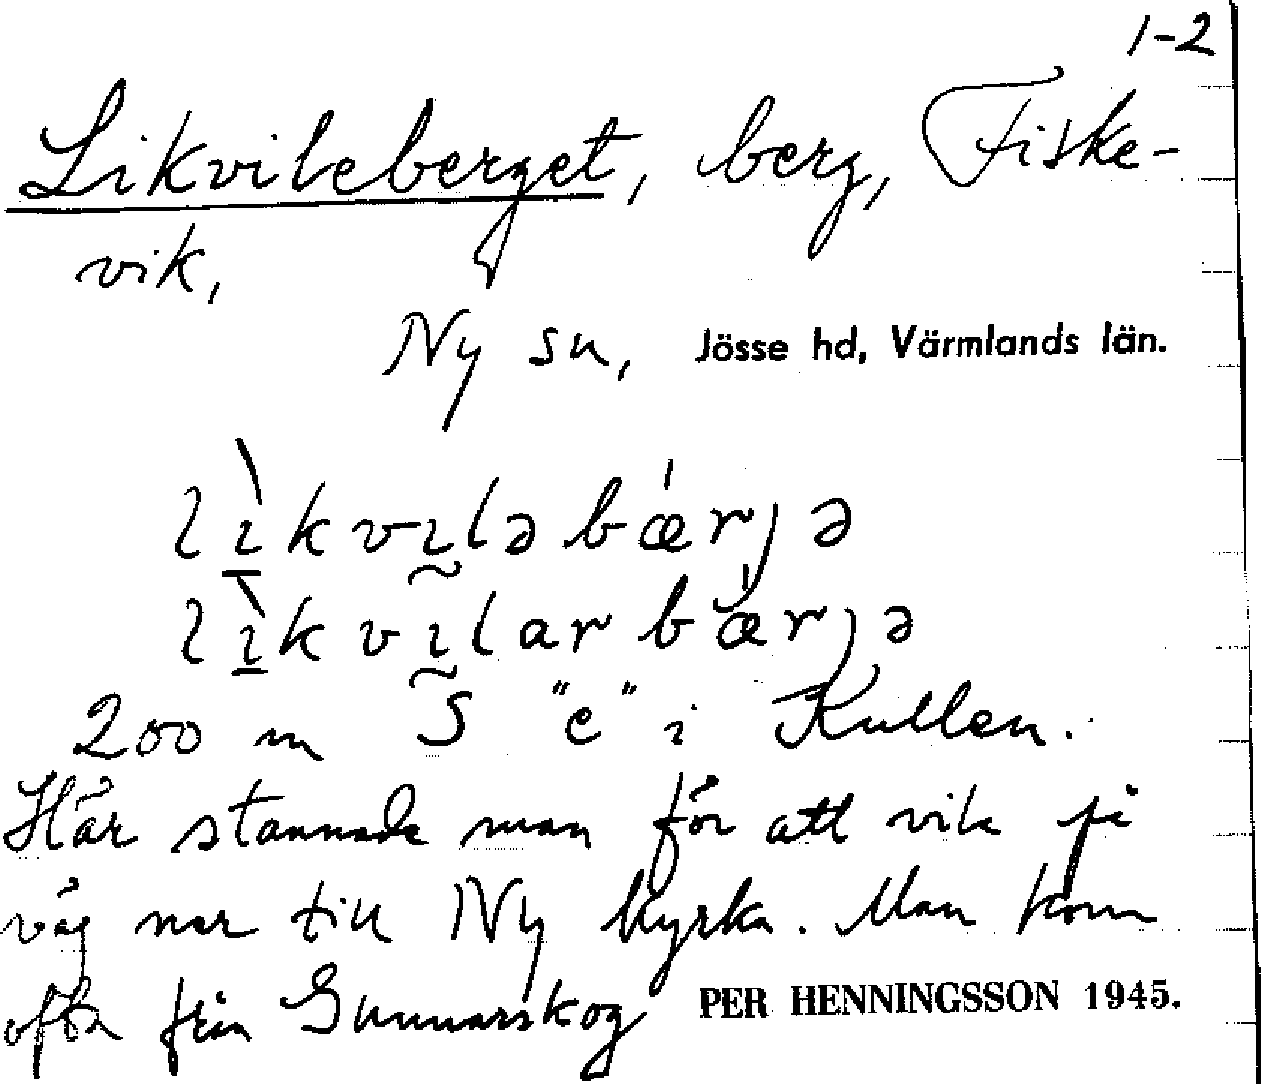 1-2
Likvileberget, berg, Fiske-
vik,
Ny sn, Jösse hd, Värmlands län.
lìkvıləbǽrjə
lìkvılarbǽrjə
200 m S "e" i Kullen.
Här stannade man för att vila på
väg ner till Ny kyrka. Man kom
ofta från Gunnarskog
PER HENNINGSSON 1945.